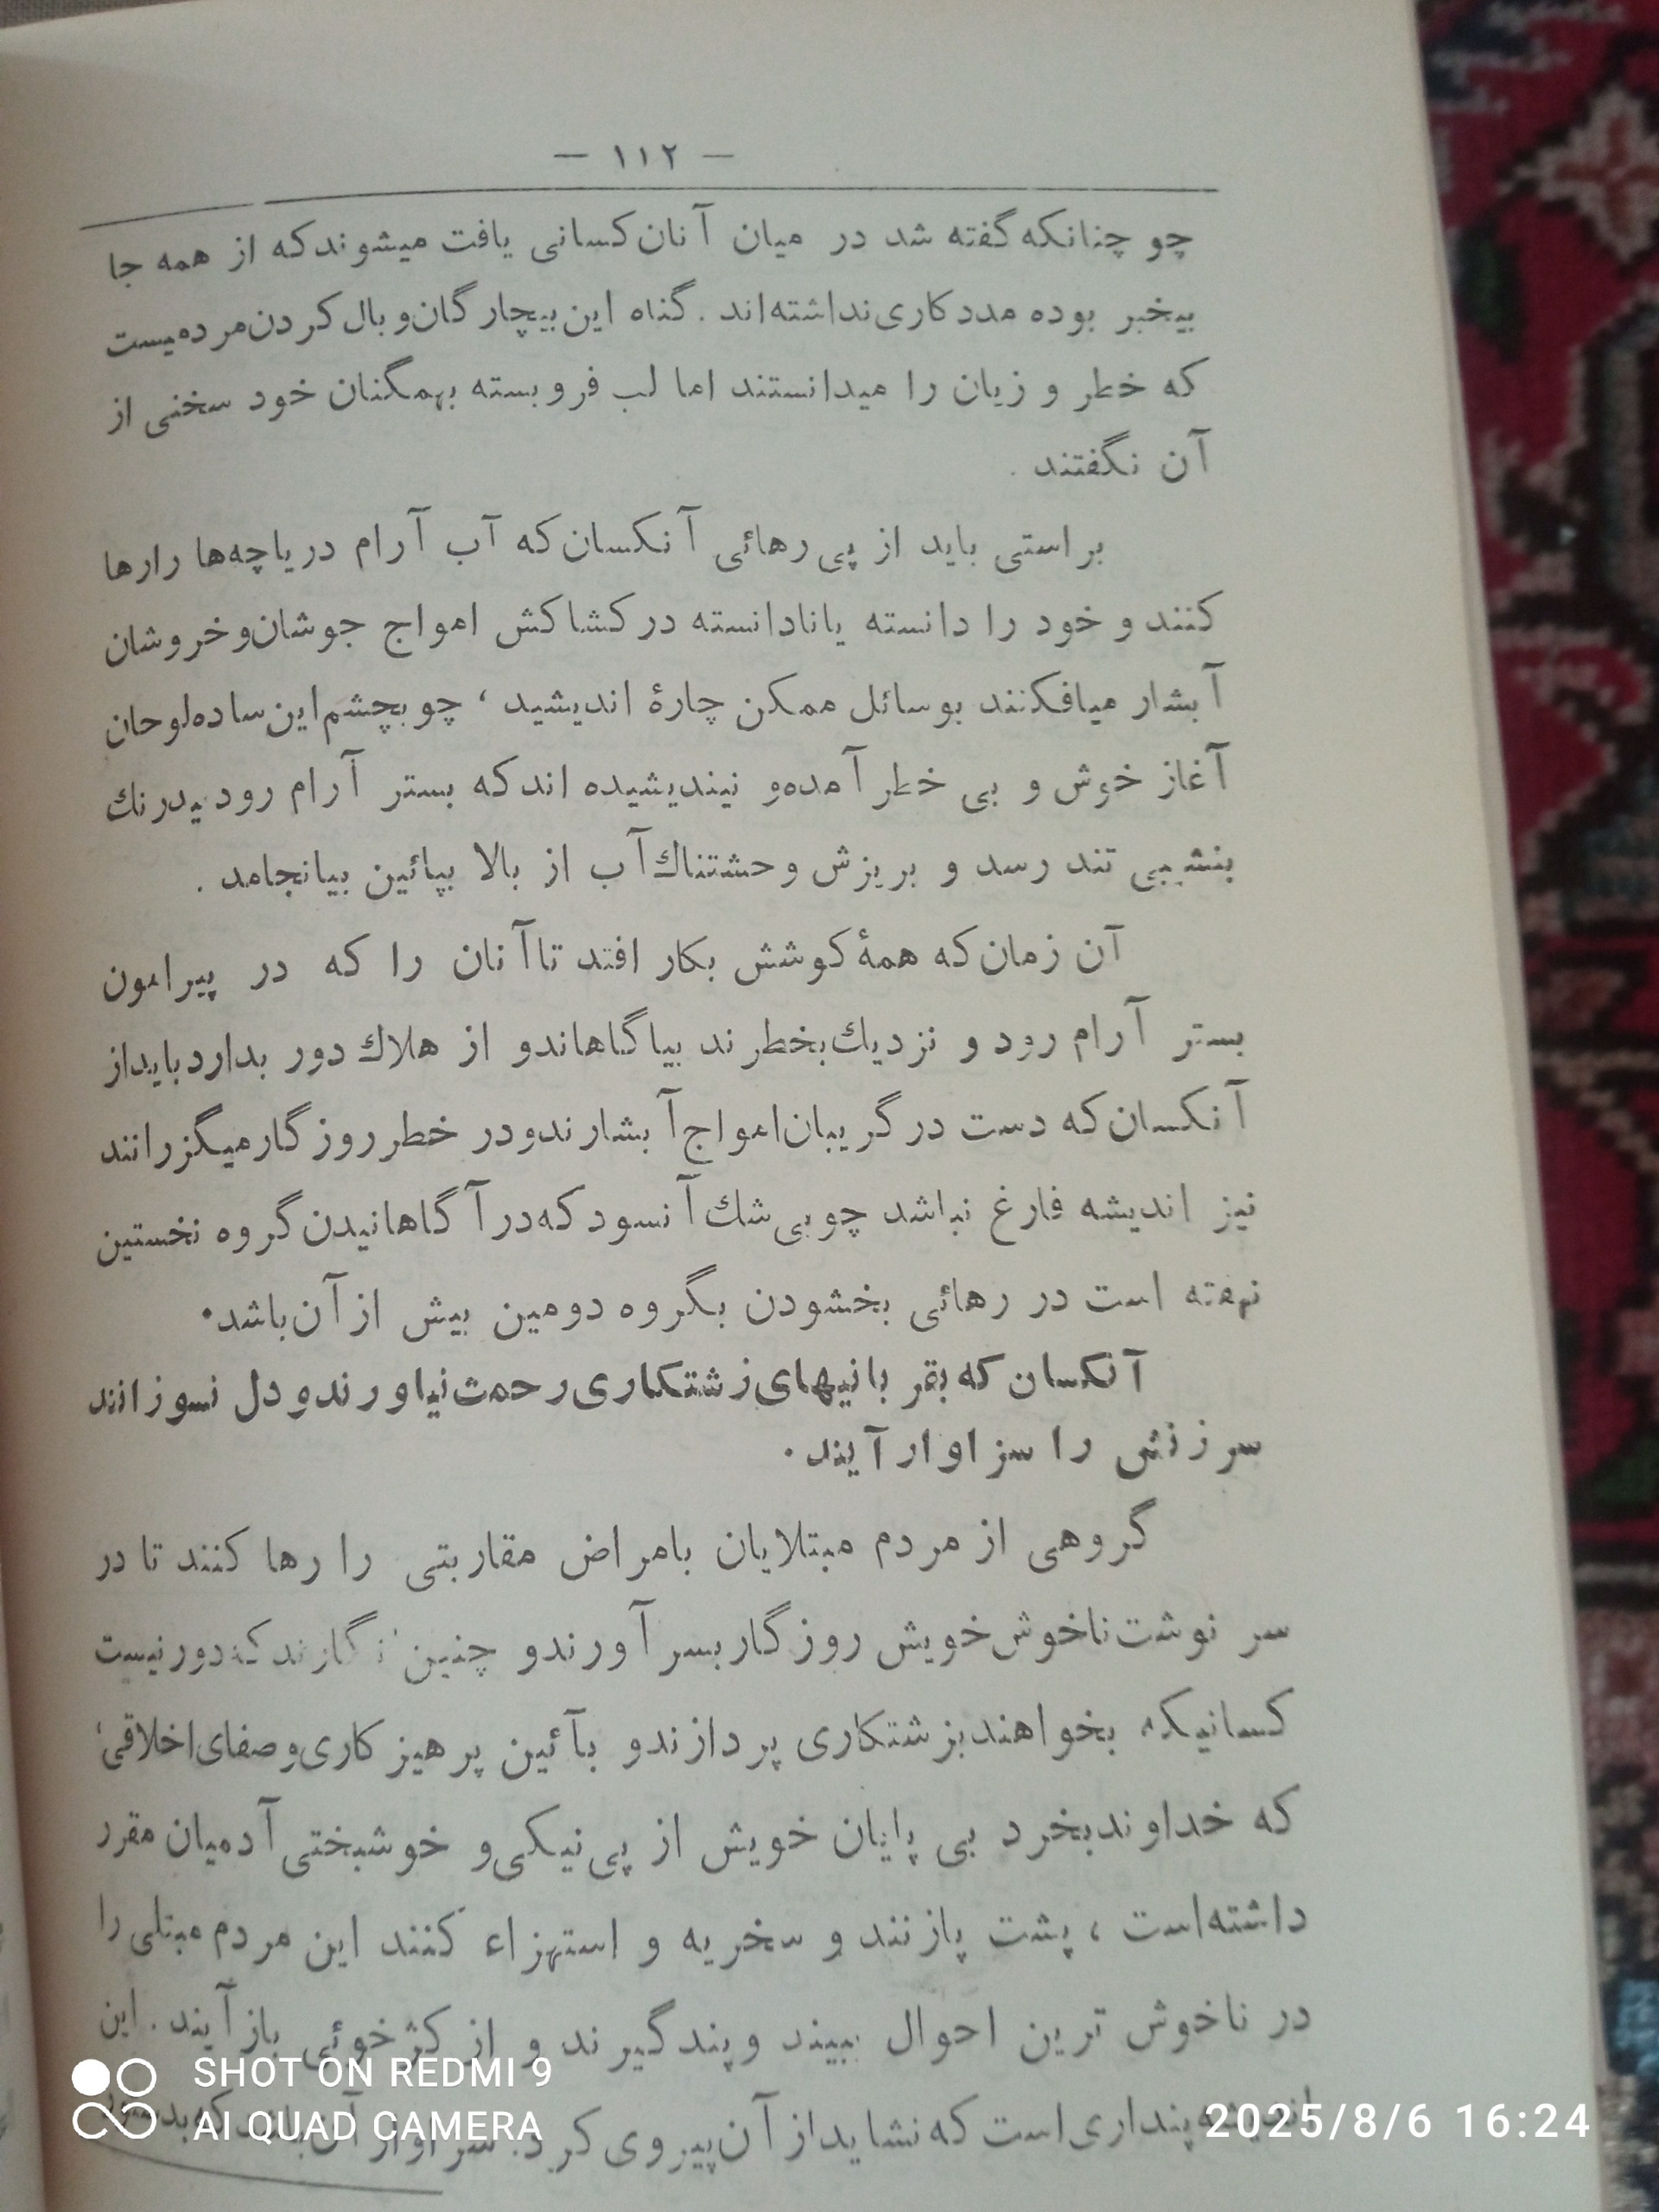 — ۱۱۲ —
چو چنانکه گفته شد در میان آنان کسانی یافت میشوند که از همه جا
بیخبر بوده مددکاری نداشته‌اند . گناه این بیچارگان وبال گردن مردمیست
که خطر و زیان را میدانستند اما لب فروبسته بهمگنان خود سخنی از
آن نگفتند .
براستی باید از پی رهائی آنکسان که آب آرام دریاچه‌ها را رها
کنند و خود را دانسته یا نادانسته در کشاکش امواج جوشان و خروشان
آبشار میافکنند بوسائل ممکن چارهٔ اندیشید ، چو بچشم این ساده‌لوحان
آغاز خوش و بی خطر آمده و نیندیشیده اند که بستر آرام رود بیدرنك
بنشیبی تند رسد و بریزش وحشتناك آب از بالا بپائین بیانجامد .
آن زمان که همهٔ کوشش بکار افتد تا آنان را که در پیرامون
بستر آرام رود و نزدیك بخطرند بیاگاهاند و از هلاك دور بدارد باید از
آنکسان که دست در گریبان امواج آبشارند و در خطر روزگار میگزرانند
نیز اندیشه فارغ نباشد چو بی شك آنسود که در آگاهانیدن گروه نخستین
نهفته است در رهائی بخشودن بگروه دومین بیش از آن باشد .
آنکسان که بقربانیهای زشتکاری رحمت نیاورند و دل نسوزانند
سرزنش را سزاوار آیند .
گروهی از مردم مبتلایان بامراض مقاربتی را رها کنند تا در
سرنوشت ناخوش خویش روزگار بسر آورند و چنین انگارند که دور نیست
کسانیکه بخواهند بزشتکاری پردازند و بآئین پرهیزکاری و صفای اخلاقی
که خداوند بخرد بی پایان خویش از پی نیکی و خوشبختی آدمیان مقرر
داشته‌است ، پشت پا زنند و سخریه و استهزاء کنند این مردم مبتلی را
در ناخوش ترین احوال ببیند و پند گیرند و از کژخوئی باز آیند . این
پنداری است که نشاید از آن پیروی کرد .
SHOT ON REDMI 9
AI QUAD CAMERA
2025/8/6 16:24